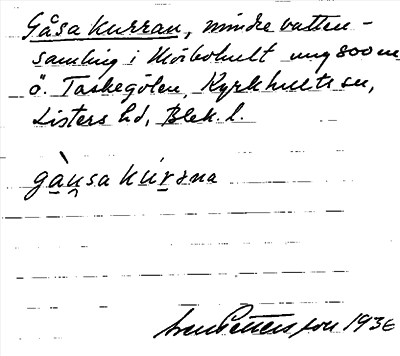 Gåsa kurran, mindre vatten-
samling i Möibohult ung 800 m
ö. Taskegölen, Kyrkhults sn,
Listers hd, Blek. l.
gàu̯sa kúrəna
Sven Pettersson 1936